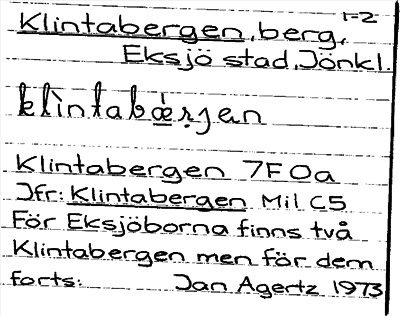 1-2
Klintabergen, berg,
Eksjö stad, Jönkl.
klìntabǽrjan
Klintabergen 7F0a
Jfr: Klintabergen Mil C5
För Eksjöborna finns två
Klintabergen men för dem
forts: Jan Agertz 1973